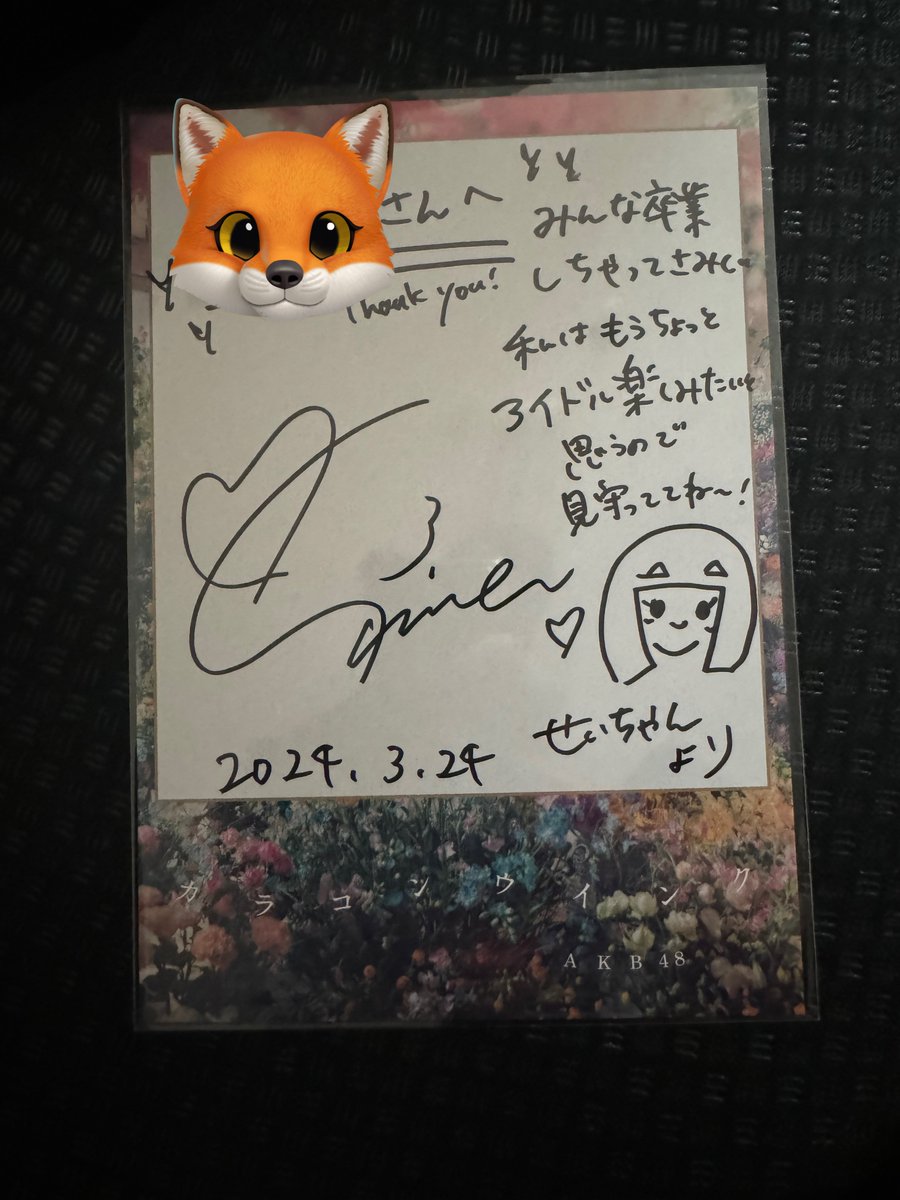 さんへ
Thank you!
みんな卒業
しちゃってさみしー
私はもうちょっと
アイドル楽しみたいと
思うので
見守っててね〜!
2024.3.24
せいちゃん
より
カラコンウインク
AKB48